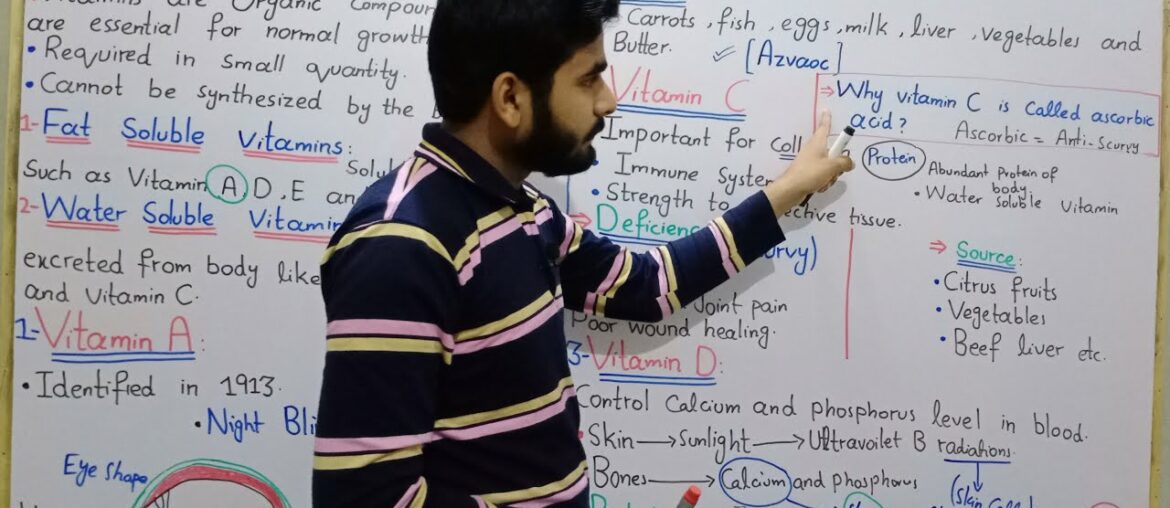 Vitamins are Organic Compoun
are essential for normal growth
• Required in small quantity.
• Cannot be synthesized by the
1- Fat Soluble Vitamins:
Solu
Such as Vitamin A D, E an
2- Water Soluble Vitamin
excreted from body like
and Vitamin C.
1- Vitamin A:
• Identified in 1913.
• Night Bli
Eye shape
Carrots, fish, eggs, milk, liver, vegetables and
Butter.
[Azvaoc]
Vitamin C
Important for Coll
• Immune System
• Strength to
ective tissue.
⇒ Deficienc
urvy)
Joint pain
Poor wound healing.
⇒ Why vitamin C is called ascorbic
acid?
Ascorbic = Anti-Scurvy
Protein
Abundant Protein of
body.
• Water soluble Vitamin
⇒ Source:
• Citrus fruits
• Vegetables
• Beef liver etc.
3- Vitamin D:
Control Calcium and phosphorus level in blood.
• Skin → Sunlight → Ultravoilet B radiations.
Bones → Calcium and phosphorus
(Skin Cell)